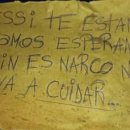 ESSI TE ESTA
MOS ESPERAN
IN ES NARCO N
VA A CUIDAR...